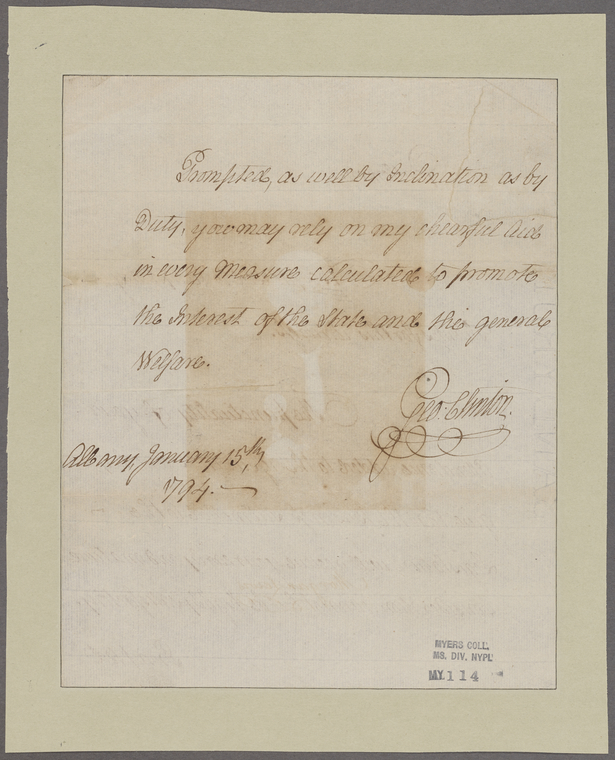 Prompted, as well by Inclination as by
Duty, you may rely on my chearful Aid
in every Measure calculated to promote
the Interest of the State and the general
Welfare.
Geo. Clinton.
Albany, January 15th,
1794.
MYERS COLL.
MS. DIV. NYPL
MY. 114